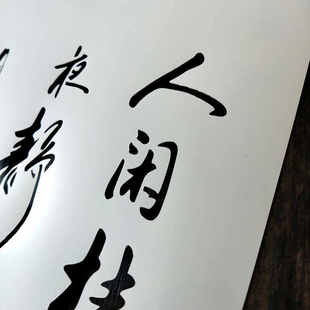 人闲桂
夜静